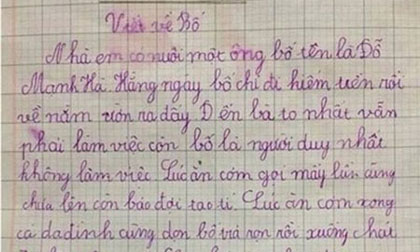 Viết về Bố
Nhà em có nuôi một ông bố tên là Đỗ
Mạnh Hà. Hằng ngày bố chỉ đi kiếm tiền rồi
về nằm ườn ra đấy Đến bà to nhất vẫn
phải làm việc còn bố là người duy nhất
không làm việc Lúc ăn cơm gọi mấy lần cũng
chưa lên còn bảo đợi tao tí. Lúc ăn cơm xong
cả da đình cùng dọn bố trả nọn rồi xuống chơi